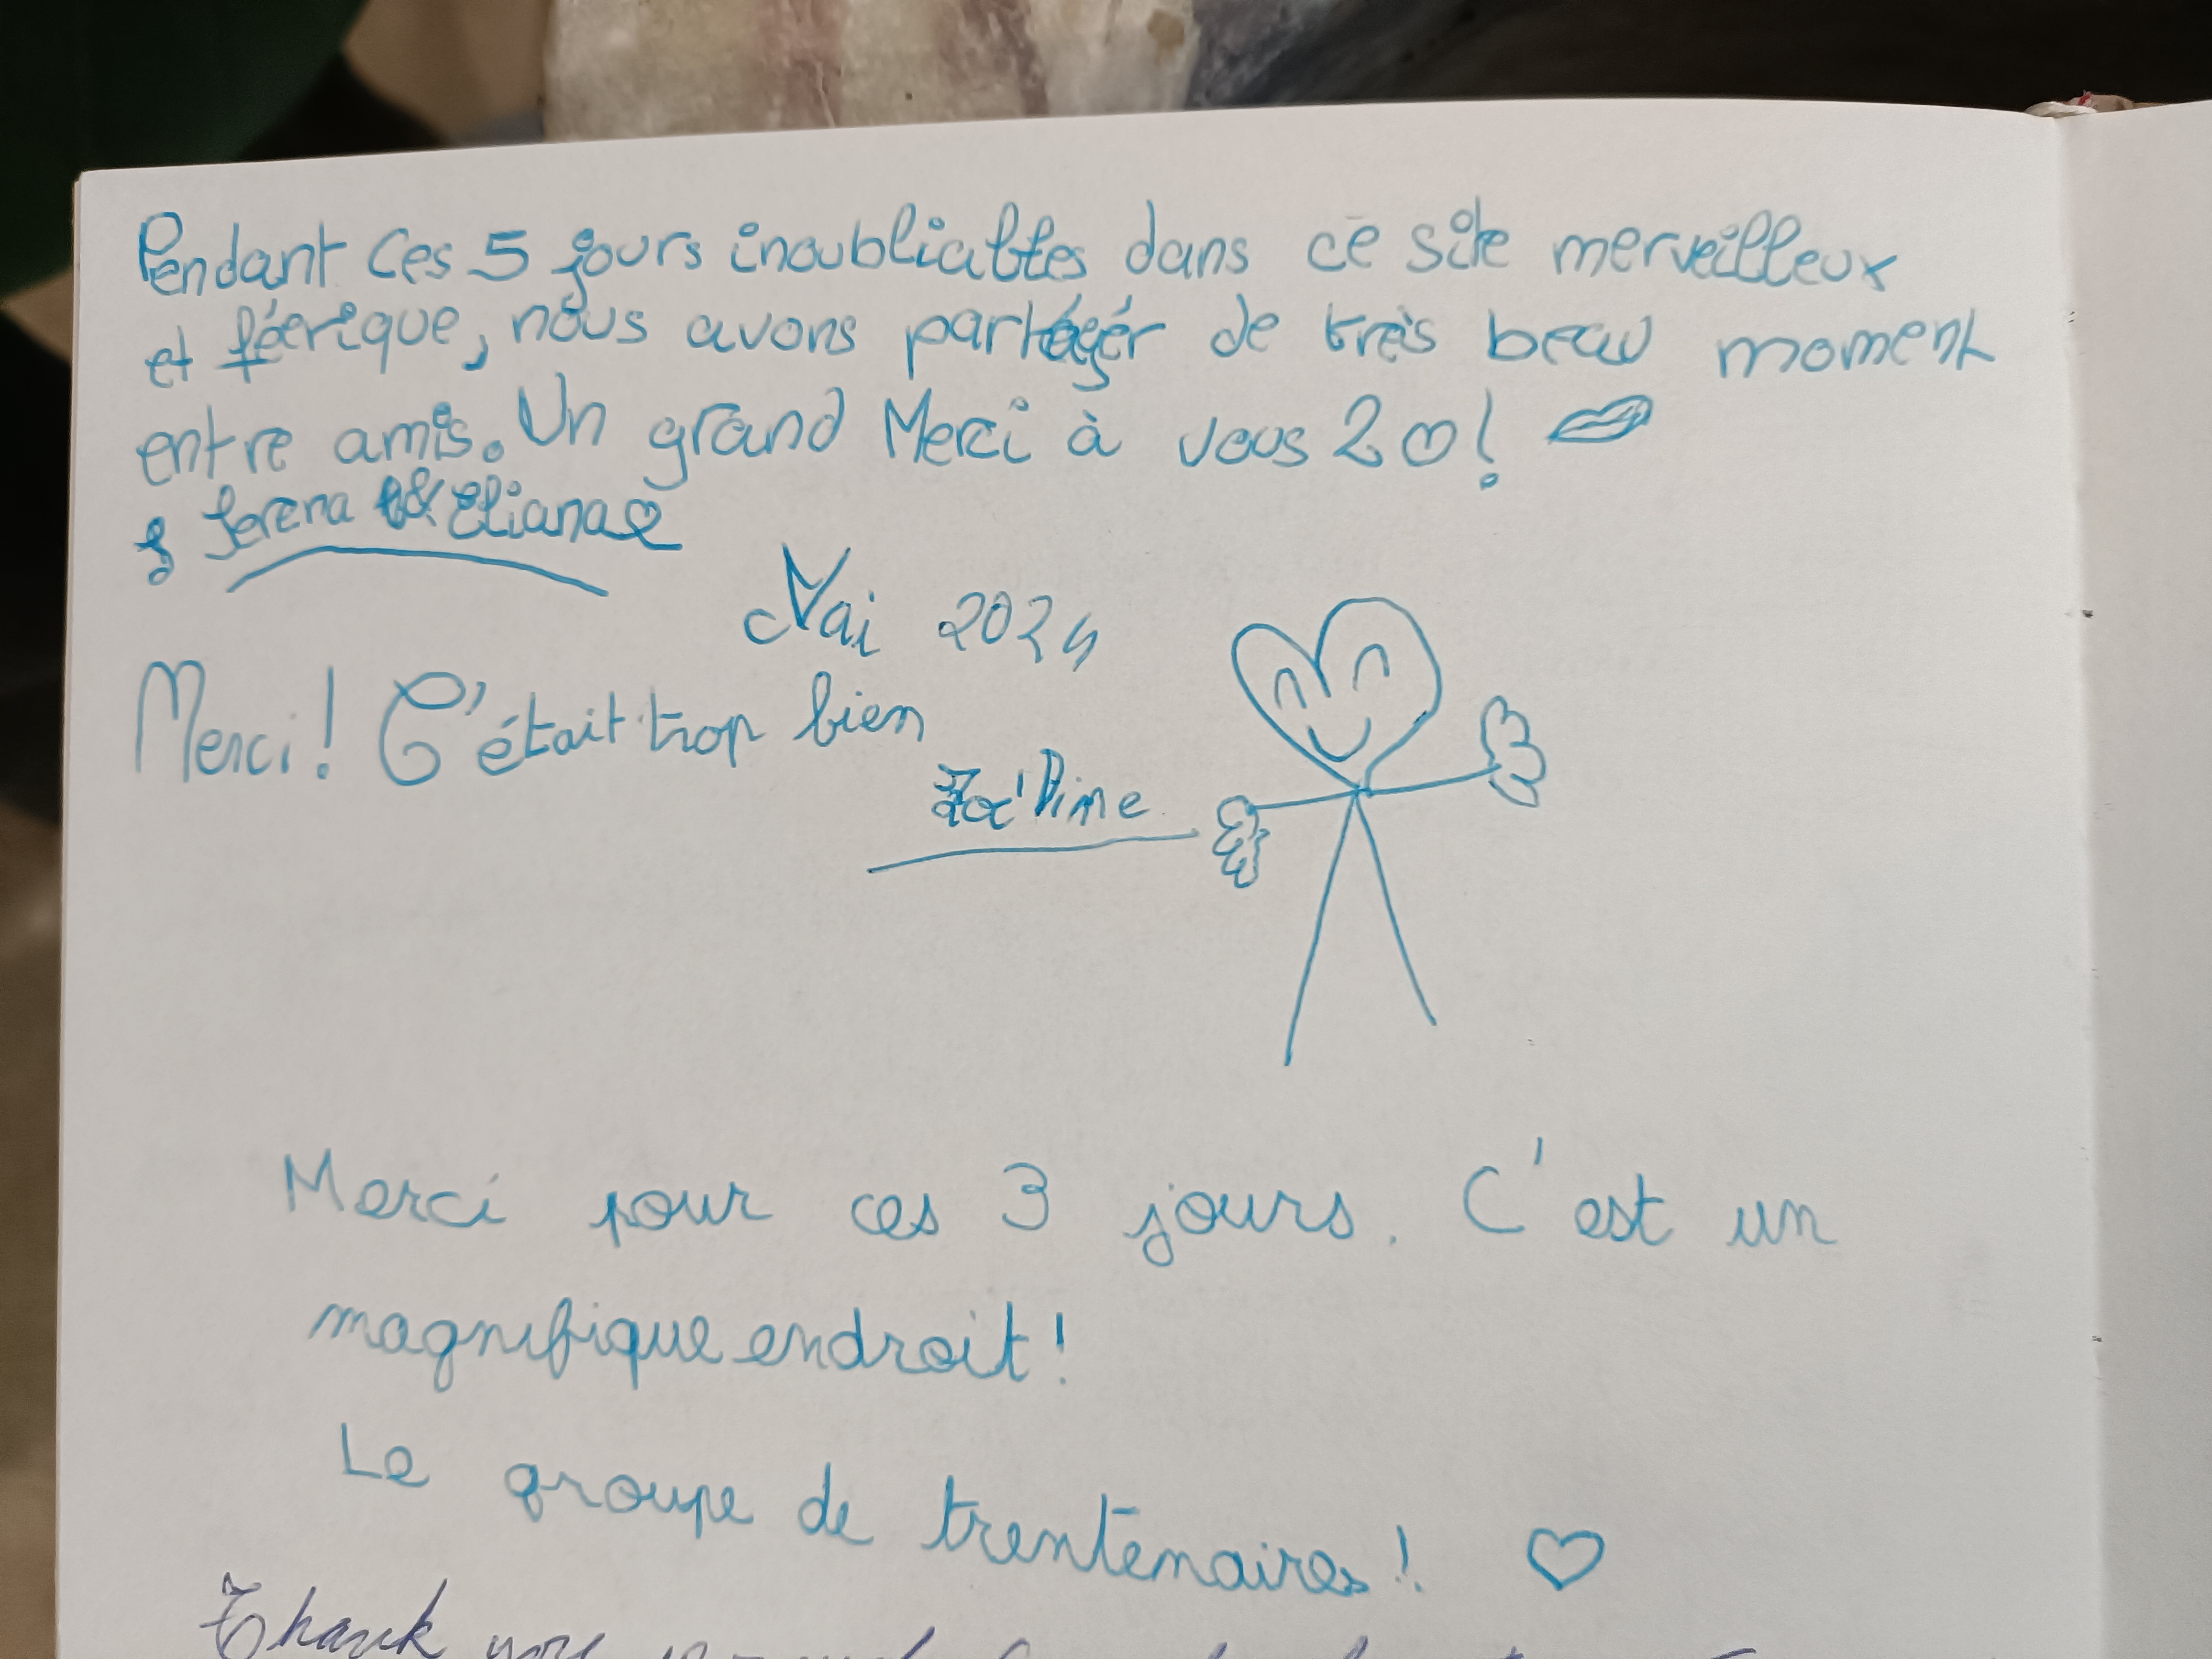 Pendant ces 5 jours inoubliables dans ce site merveilleux
et féerique, nous avons partéger de très beau moment
entre amis. Un grand Merci à vous 20!
Serena & Eliana
Mai 2024
Merci! C'était trop bien
Merci pour ces 3 jours. C'est un
magnifique endroit!
Le groupe de trentenaires!
Thank you